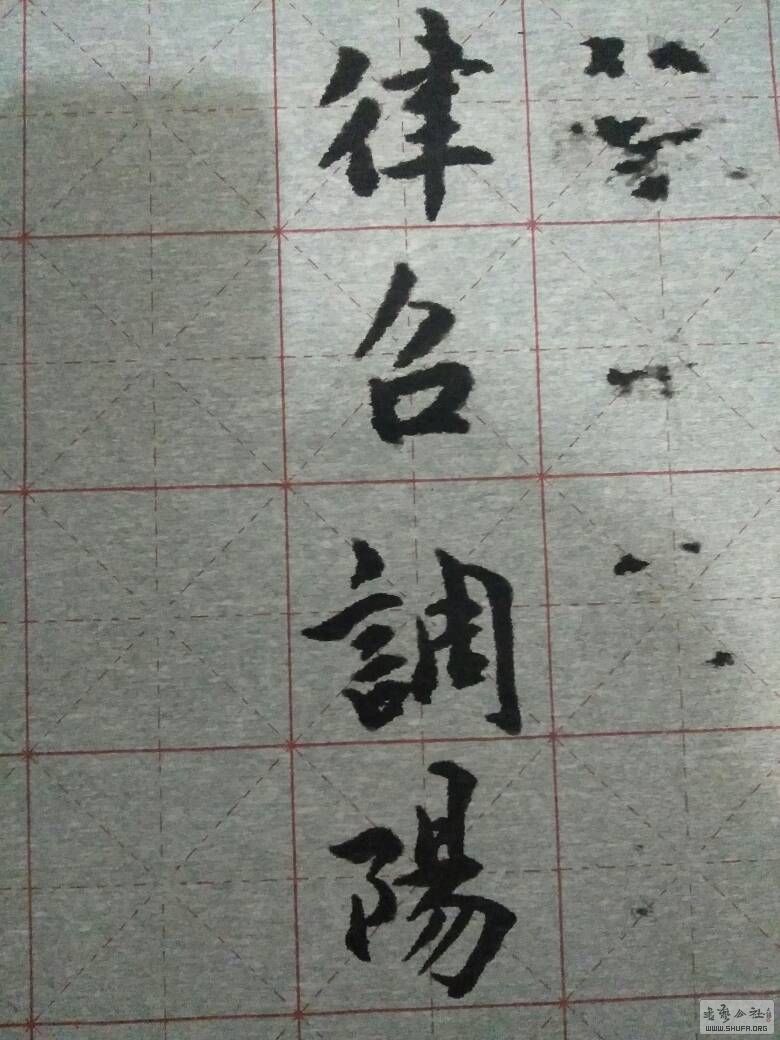 律召調陽
书艺公社
WWW.SHUFA.ORG